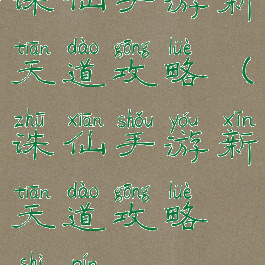 诛仙手游新
tiān dào gōng lüè
天道攻略（
zhū xiān shǒu yóu xīn
诛仙手游新
tiān dào gōng lüè
天道攻略